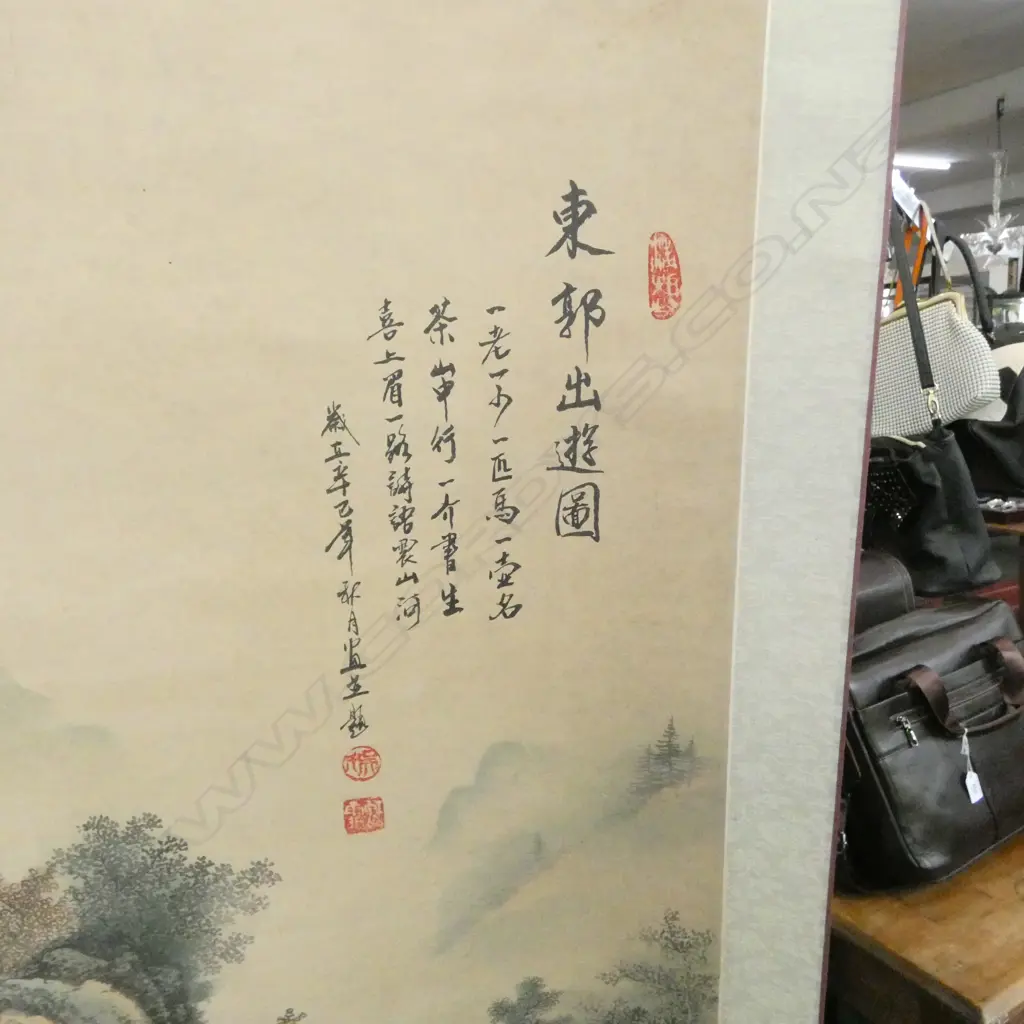 東郭出遊圖
一老一少一匹馬一壺名
茶山中行一介書生
喜上眉一路詩諸異山河
歲在辛巳年秋月畫並題